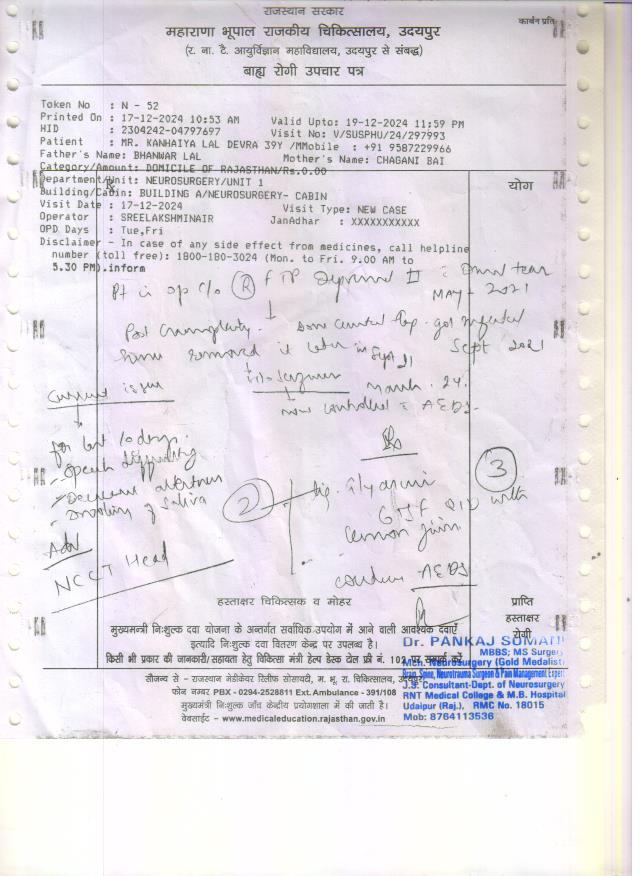 राजस्थान सरकार
कार्बन प्रति
महाराणा भूपाल राजकीय चिकित्सालय, उदयपुर
(र. ना. टै. आयुर्विज्ञान महाविद्यालय, उदयपुर से संबद्ध)
बाह्य रोगी उपचार पत्र
Token No : N - 52
Printed On : 17-12-2024 10:53 AM Valid Upto: 19-12-2024 11:59 PM
HID : 2304242-04797697 Visit No: V/SUSPHU/24/297993
Patient : MR. KANHAIYA LAL DEVRA 39Y /MMobile : +91 9587229966
Father's Name: BHANWAR LAL Mother's Name: CHAGANI BAI
Category/Amount: DOMICILE OF RAJASTHAN/Rs.0.00
Department/Unit: NEUROSURGERY/UNIT 1
योग
Building/Cabin: BUILDING A/NEUROSURGERY- CABIN
Visit Date : 17-12-2024 Visit Type: NEW CASE
Operator : SREELAKSHMINAIR JanAadhar : XXXXXXXXXXX
OPD Days : Tue,Fri
Disclaimer - In case of any side effect from medicines, call helpline
number (toll free): 1800-180-3024 (Mon. to Fri. 9.00 AM to
5.30 PM).inform
R FTP tear
MAY - 2021
Post got infected
removed it later in Sept 21 Sept 2021
March. 24.
Current issue
now controlled AEDs.
for last 10 days.
- speech difficulty
- Decrease
- drooling of Saliva
2
3
with
Adv
NCCT Head
continue AEDs
हस्ताक्षर चिकित्सक व मोहर
प्राप्ति
हस्ताक्षर
रोगी
मुख्यमन्त्री निःशुल्क दवा योजना के अन्तर्गत सर्वाधिक उपयोग में आने वाली आवश्यक दवाएँ
इत्यादि निःशुल्क दवा वितरण केन्द्र पर उपलब्ध है।
किसी भी प्रकार की जानकारी/सहायता हेतु चिकित्सा मंत्री हेल्प डेस्क टोल फ्री नं. पर सम्पर्क करें
Dr. PANKAJ SOMANI
MBBS; MS Surgery
Mch. Neurosurgery (Gold Medalist)
Brain, Spine, Neurotrauma Surgeon & Pain Management Expert
J.S. Consultant-Dept. of Neurosurgery
RNT Medical College & M.B. Hospital
Udaipur (Raj.), RMC No. 18015
Mob: 8764113536
सौजन्य से - राजस्थान मेडीकेयर रिलीफ सोसायटी, म. भू. रा. चिकित्सालय, उदयपुर
फोन नम्बर PBX - 0294-2528811 Ext. Ambulance - 391/108
मुख्यमंत्री निःशुल्क जाँच केन्द्रीय प्रयोगशाला में की जाती है।
वेबसाईट - www.medicaleducation.rajasthan.gov.in